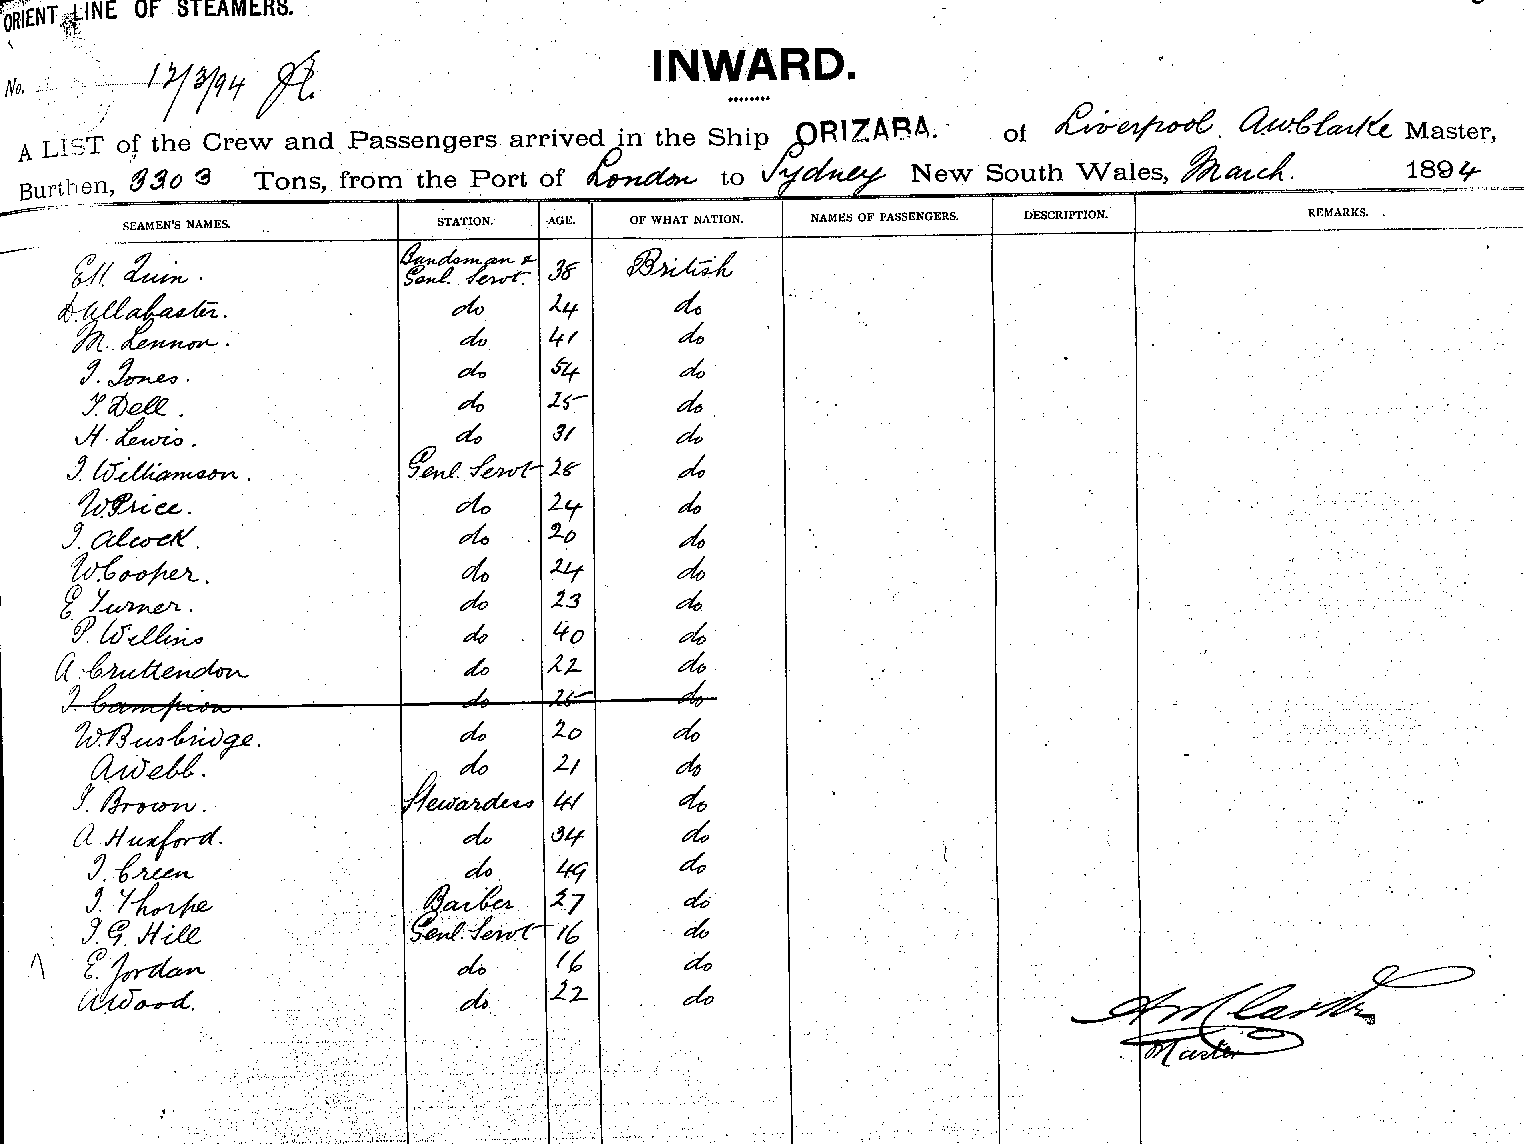 ORIENT LINE OF STEAMERS.
No. 12/3/94
INWARD.
A LIST of the Crew and Passengers arrived in the Ship ORIZABA. of Liverpool. A.W. Clarke Master,
Burthen, 3303 Tons, from the Port of London to Sydney New South Wales, March. 1894
SEAMEN'S NAMES. STATION. AGE. OF WHAT NATION. NAMES OF PASSENGERS. DESCRIPTION. REMARKS.
Quin. Bandsman & Genl. Servt. 38 British
D. Allabaster. do 24 do
M. Lennon. do 41 do
J. Jones. do 54 do
F. Dell. do 25 do
H. Lewis. do 31 do
J. Williamson. Genl. Servt 28 do
W. Price. do 24 do
J. Alcock. do 20 do
W. Cooper. do 24 do
E. Turner. do 23 do
P. Wellins do 40 do
A. Cruttendon do 22 do
J. Campion. do 25 do
W. Busbridge. do 20 do
A Webb. do 21 do
J. Brown. Stewardess 41 do
A. Huxford. do 34 do
J. Green do 49 do
J. Thorpe Barber 27 do
J. G. Hill Genl. Servt 16 do
E. Jordan do 16 do
A Wood. do 22 do
A W Clarke
Master